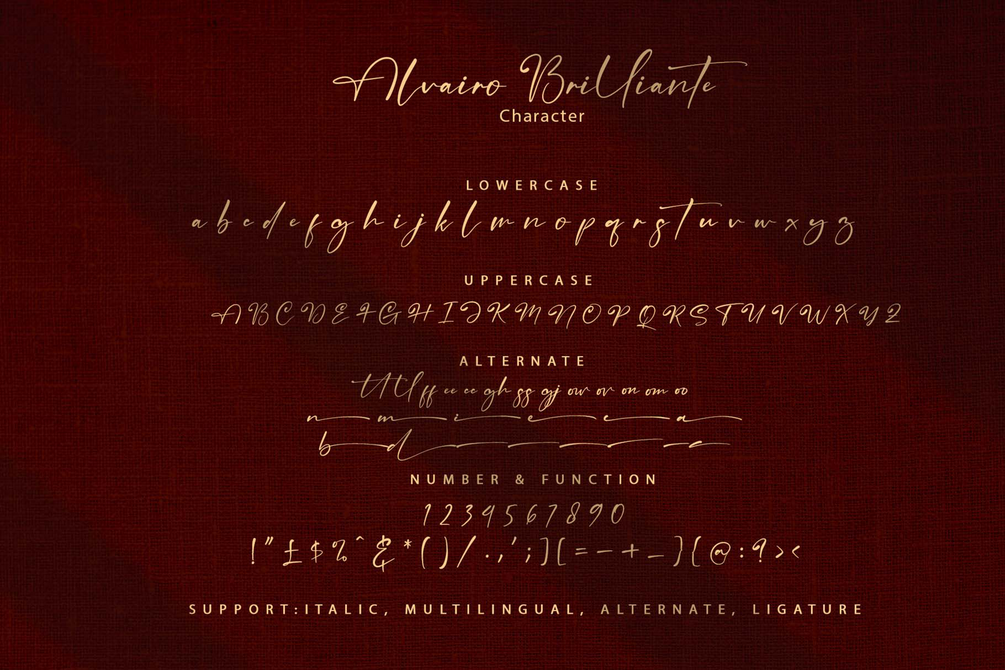 Alvairo Brilliante
Character
LOWERCASE
a b c d e f g h i j k l m n o p q r s t u v w x y z
UPPERCASE
A B C D E F G H I J K M N O P Q R S T U V W X Y Z
ALTERNATE
tt At tl ff cc ee gh gg gj ow ov on om oo
n m i e c a
b d
NUMBER & FUNCTION
1 2 3 4 5 6 7 8 9 0
! " £ $ % ^ & * ( ) / . , ' ; ] [ = - + _ } { @ : ? > <
SUPPORT:ITALIC, MULTILINGUAL, ALTERNATE, LIGATURE